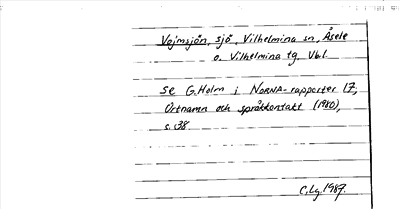 Vojmsjön, sjö, Vilhelmina sn, Åsele
o. Vilhelmina tg. Vbl.
se G. Holm i NORNA-rapporter 17,
Ortnamn och språkkontakt (1980),
s. 38.
C. Lg. 1987.